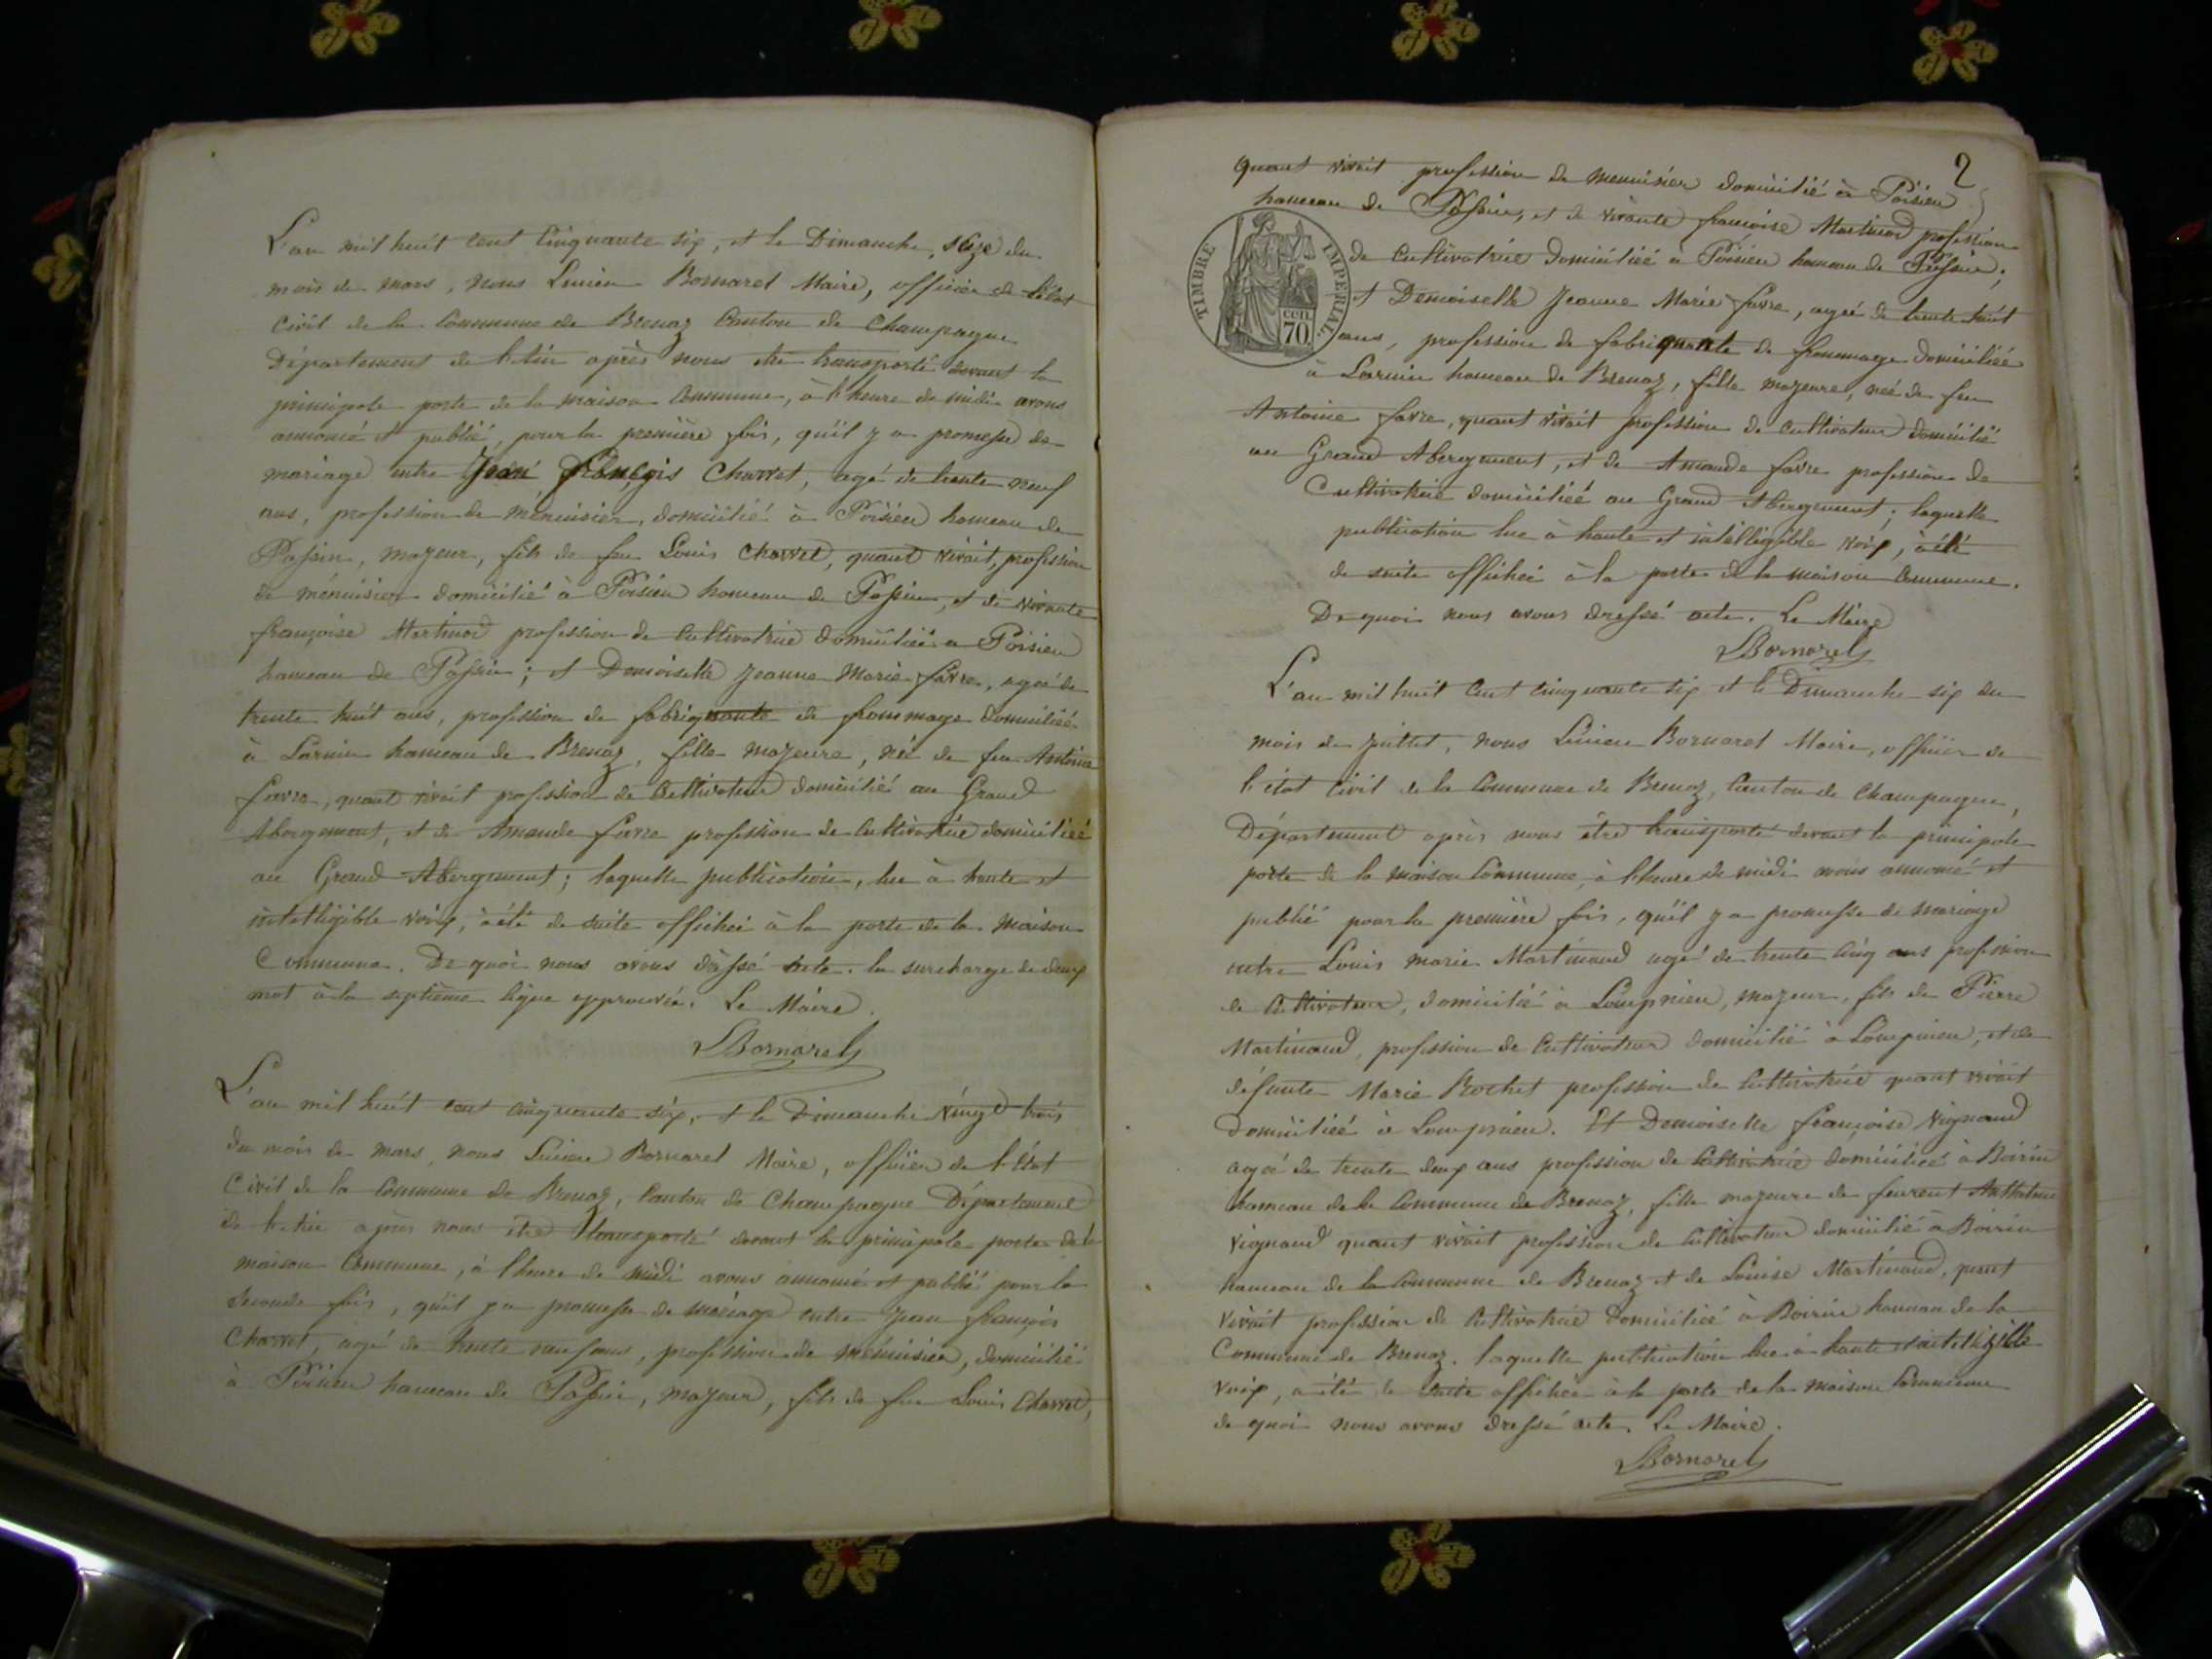 L'an mil huit cent cinquante six, et le Dimanche, seize du
mois de mars, nous Lucien Bornarel Maire, officier de l'état
Civil de la Commune de Brenaz Canton de Champagne
Département de l'Ain après nous être transporté devant la
principale porte de la maison Commune, à l'heure de midi avons
annoncé et publié, pour la première fois, qu'il y a promesse de
mariage entre Jean françois Charvet, agé de trente neuf
ans, profession de ménuisier, domicilié à Poisieu hameau de
Passin, majeur, fils de feu Louis Charvet, quant vivait, profession
de ménuisier domicilié à Poisieu hameau de Passin, et de vivante
françoise Martinod profession de Cultivatrice domiciliée a Poisieu
hameau de Passin; et Demoiselle Jeanne Marie favre, agée de
trente huit ans, profession de fabriquante de frommage domiciliée
à Larnin hameau de Brenaz, fille majeure, née de feu Antoine
favre, quant vivait profession de Cultivateur domicilié au Grand
Abergement, et de Amande favre profession de Cultivatrice domiciliée
au Grand Abergement; laquelle publication, lue à haute et
intelligible voix, à été de suite affichée à la porte de la maison
Commune. De quoi nous avons dressé acte. la surcharge de deux
mot à la septième ligne approuvée. Le Maire.
LBornarel
L'an mil huit cent cinquante six, et le Dimanche vingt trois
du mois de mars, nous Lucien Bornarel Maire, officier de l'état
Civil de la Commune de Brenaz, Canton de Champagne Département
de l'Ain après nous être transporté devant la principale porte de la
maison Commune, à l'heure de midi avons annoncé et publié pour la
seconde fois, qu'il y a promesse de mariage entre Jean françois
Charvet, agé de trente neuf ans, profession de ménuisier, domicilié
à Poisieu hameau de Passin, majeur, fils de feu Louis Charvet,
2
quant vivait profession de menuisier domicilié à Poisieu
hameau de Passin, et de vivante françoise Martinod profession
TIMBRE IMPERIAL
de Cultivatrice domiciliée a Poisieu hameau de Passin;
et Demoiselle Jeanne Marie favre, agée de trente huit
CEN. 70.
ans, profession de fabriquante de frommage domiciliée
à Larnin hameau de Brenaz, fille majeure, née de feu
Antoine favre, quant vivait profession de cultivateur domicilié
au Grand Abergement, et de Amande favre profession de
Cultivatrice domiciliée au Grand Abergement; laquelle
publication lue à haute et intelligible voix, à été
de suite affichée à la porte de la maison Commune.
De quoi nous avons dressé acte. Le Maire
LBornarel
L'an mil huit cent cinquante six et le Dimanche six du
mois de Juillet, nous Lucien Bornarel Maire, officier de
l'état Civil de la Commune de Brenaz, Canton de Champagne,
Département après nous être transporté devant la principale
porte de la maison Commune, à l'heure de midi avons annoncé et
publié pour la première fois, qu'il y a promesse de mariage
entre Louis marie Martinaud agé de trente cinq ans profession
de Cultivateur, domicilié à Lompnieu, majeur, fils de Pierre
Martinaud, profession de Cultivateur domicilié à Lompnieu, et de
défunte Marie Rochet profession de Cultivatrice quant vivait
domiciliée à Lompnieu. Et Demoiselle françoise Vignaud
agée de trente deux ans profession de Cultivatrice domiciliée à Boirin
hameau de la Commune de Brenaz, fille majeure de feurent
Vignaud quant vivait profession de Cultivateur domicilié à Boirin
hameau de la Commune de Brenaz et de Louise Martinaud, quant
vivait profession de Cultivatrice domiciliée à Boirin hameau de la
Commune de Brenaz. laquelle publication lue à haute et intelligible
voix, a été de suite affichée à la porte de la maison Commune
de quoi nous avons dressé acte. Le Maire.
LBornarel